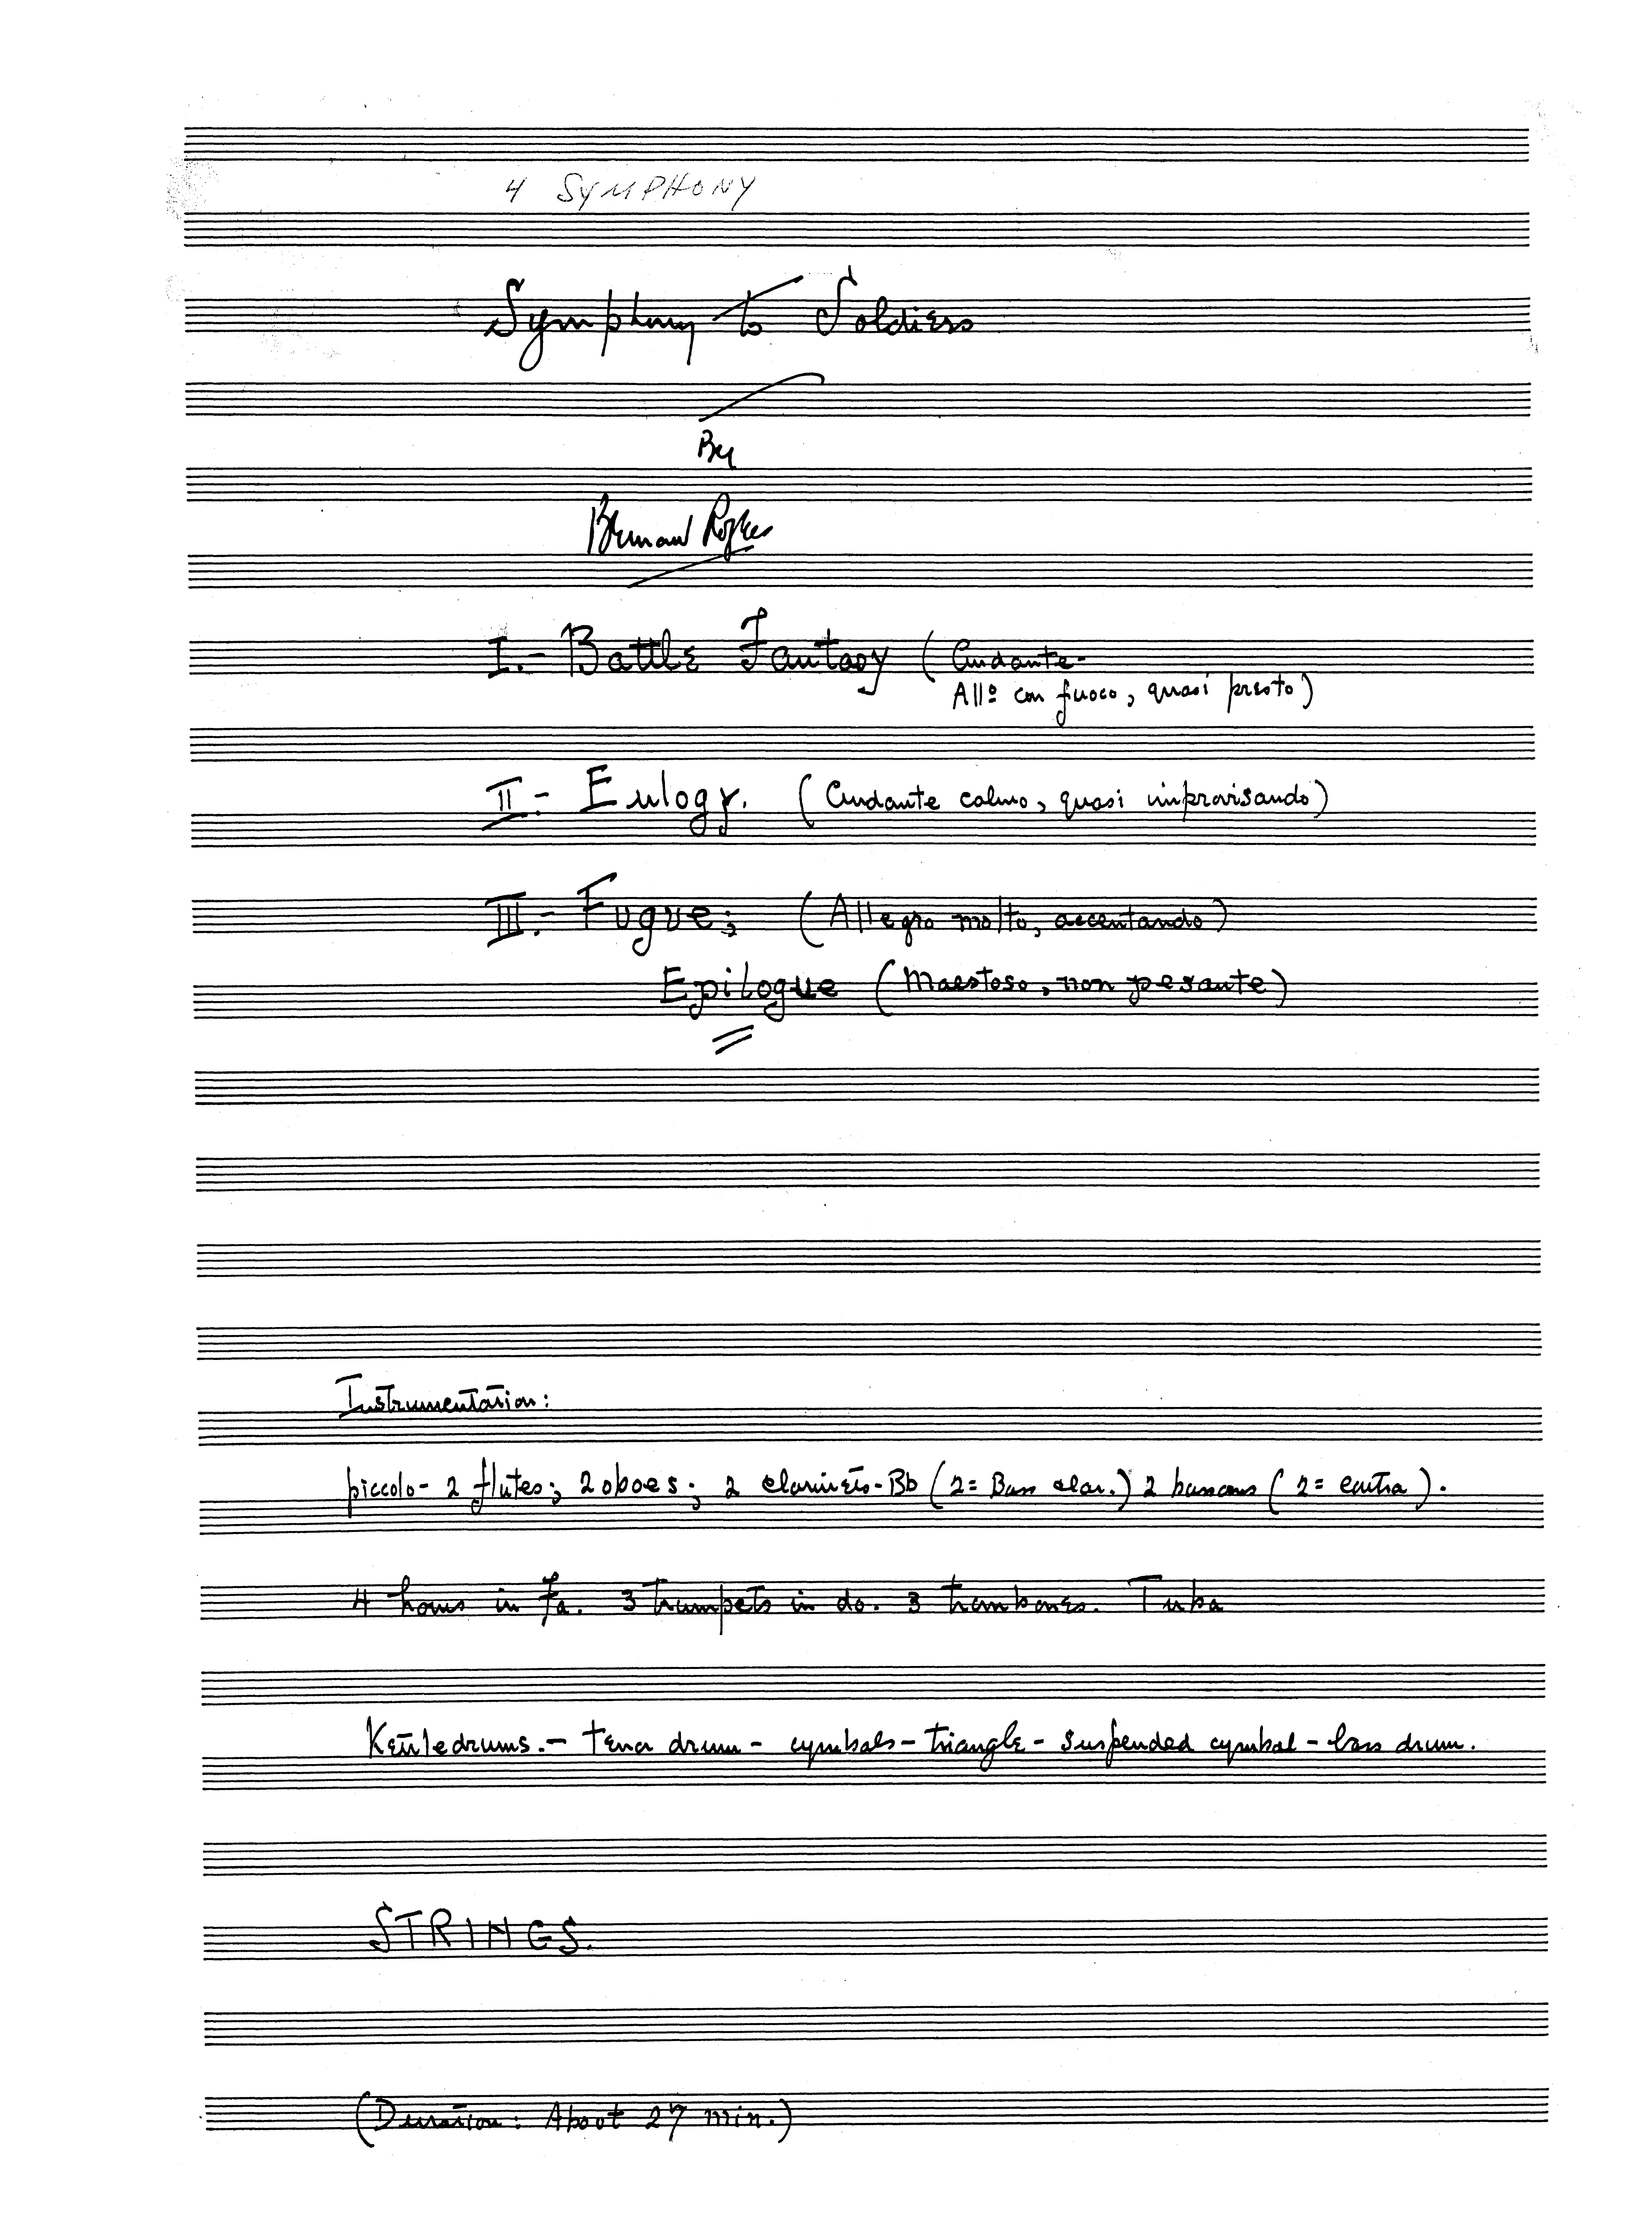 4 SYMPHONY
Symphony to Soldiers
By
Bernard Rogers
I.- Battle Fantasy (Andante-
All° con fuoco, quasi presto)
II.- Eulogy. (Andante calmo, quasi improvisando)
III.- Fugue; (Allegro molto, accentando)
Epilogue (Maestoso, non pesante)
Instrumentation:
piccolo- 2 flutes; 2 oboes; 2 clarinets-Bb (2= Bass clar.) 2 bassoons (2= contra).
4 horns in fa. 3 trumpets in do. 3 trombones. Tuba
Kettledrums.- tenor drum- cymbals- triangle- suspended cymbal- bass drum.
STRINGS.
(Duration: About 27 min.)